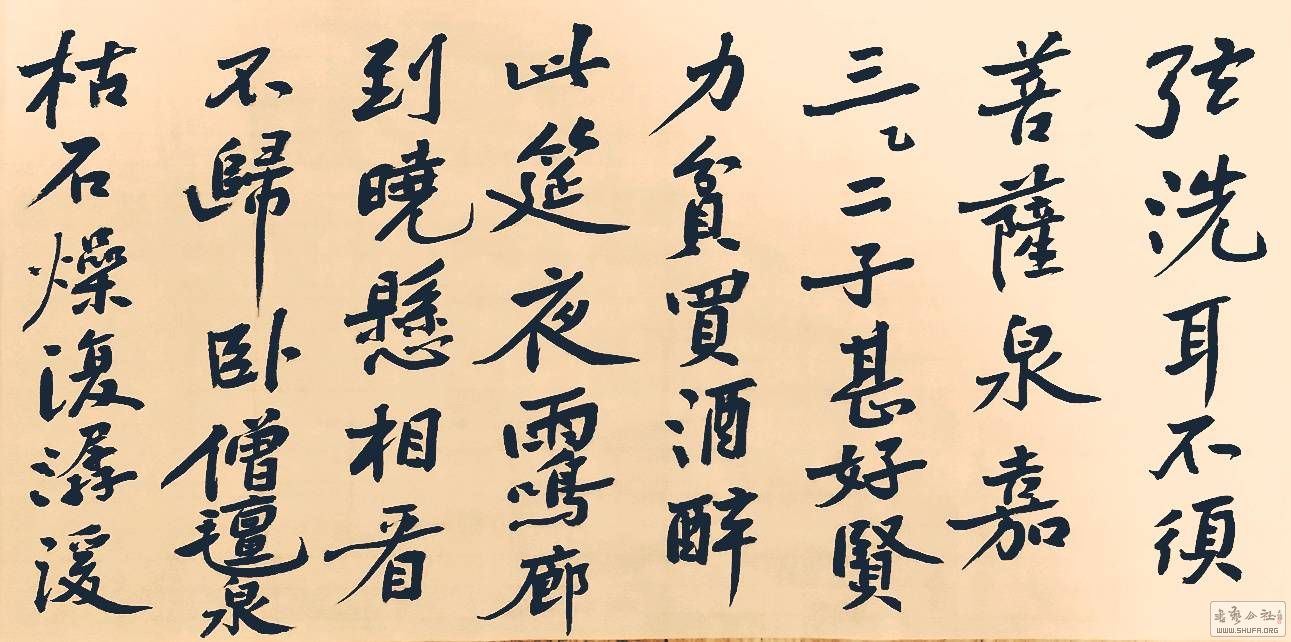 弦洗耳不須
菩薩泉嘉
三乙二子甚好賢
力貧買酒醉
此筵夜雨鳴廊
到曉懸相看
不歸卧僧氊泉
枯石燥復潺湲
WWW.SHUFA.ORG